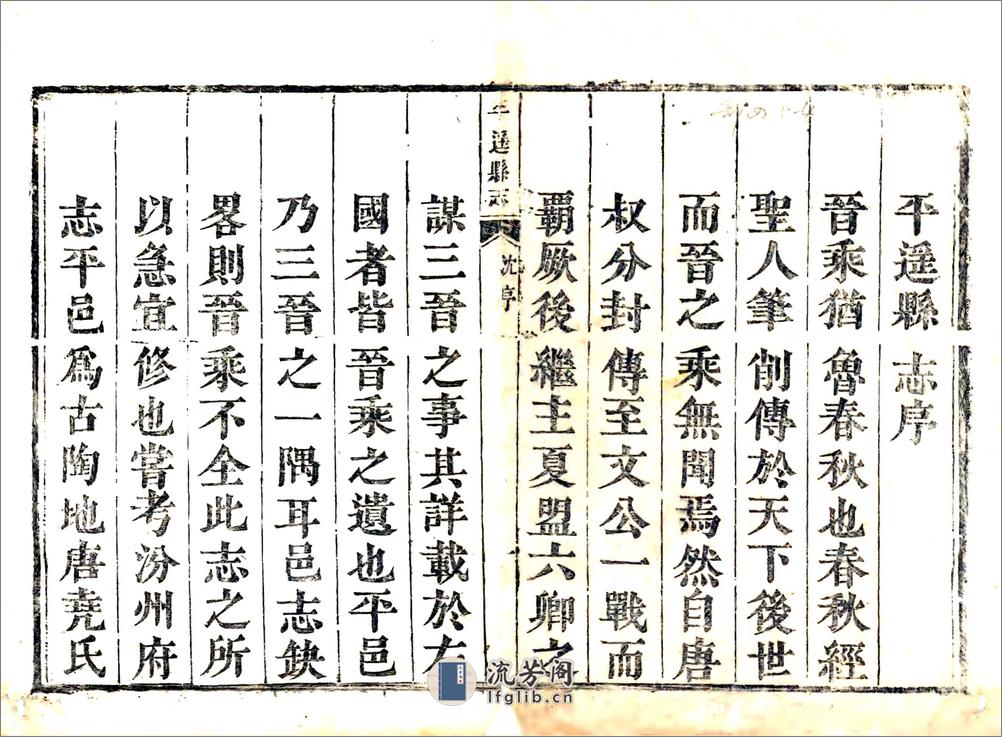 平遥縣志序
晉乘猶魯春秋也春秋經
聖人筆削傳於天下後世
而晉之乘無聞焉然自唐
叔分封傳至文公一戰而
覇厥後繼主夏盟六卿之
平遥縣志 沈序
謀三晉之事其詳載於左
國者皆晉乘之遺也平邑
乃三晉之一隅耳邑志缺
畧則晉乘不全此志之所
以急宜修也嘗考汾州府
志平邑爲古陶地唐堯氏
流芳阁
lfglib.cn